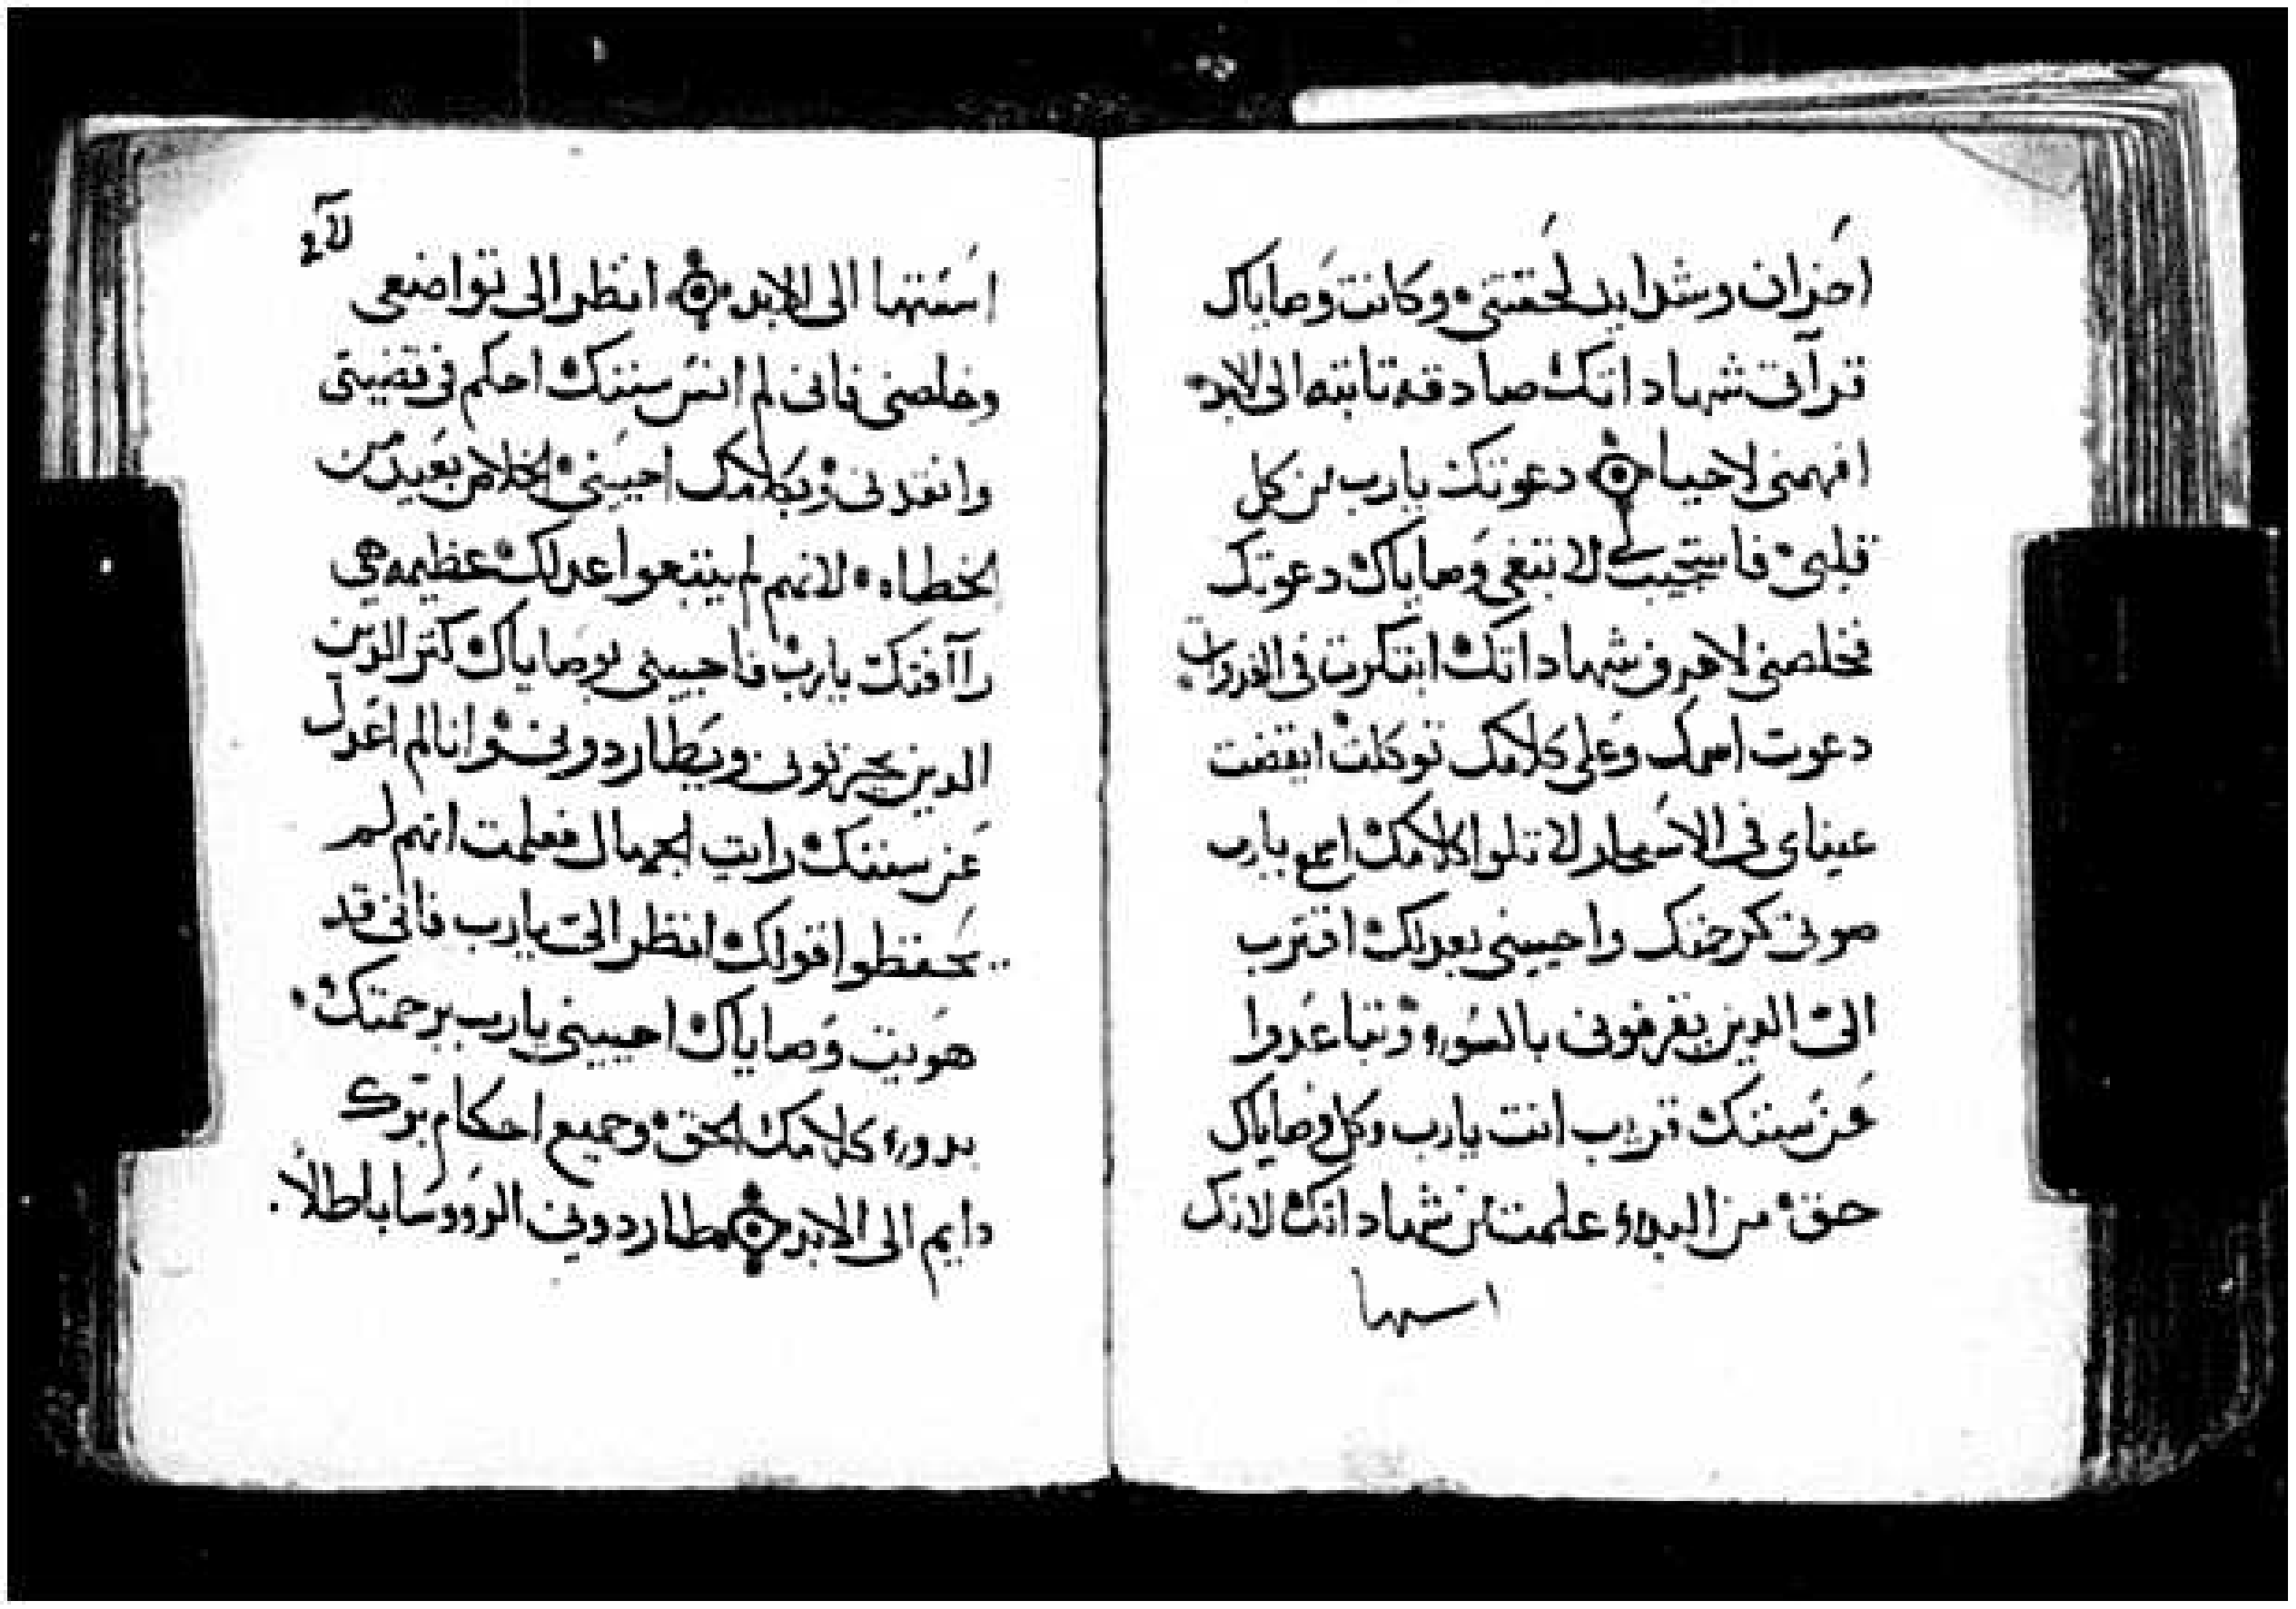 احزان وشدايد لحقتني وكانت وصاياك
قرآتي شهاداتك صادقه تابته الى الابد
افهمني لاحيا دعوتك يارب من كل
قلبي فاستجيب لي لابتغي وصاياك دعوتك
فخلصني لاعرف شهاداتك ابتكرت في الغدوات
دعوت اسمك وعلى كلامك توكلت ايقضت
عيناي في الاسحار لاتلوا كلامك اسمع يارب
صوتي كرحمتك واحييني بعدلك اقترب
الى الدين يقرفوني بالسوء وتباعدوا
عن سننك قريب انت يارب وكل وصاياك
حق من البدو علمت من شهاداتك لانك
اسستها
اسستها الى الابد انظر الى تواضعي
وخلصني فاني لم انس سننك احكم في قضيتي
وانقدني وبكلامك احييني الخلاص بعيد من
الخطاه لانهم لم يتبعوا عدلك عظيمه هي
راآفتك يارب فاحييني بوصاياك كتر الدين
الدين يحزنوني ويطاردوني وانا لم اعدل
عن سننك رايت الجهال فعلمت انهم لم
يحفظوا اقولك انظر الي يارب فاني قد
هويت وصاياك احييني يارب برحمتك
بدو كلامك الحق وجميع احكام برك
دايم الى الابد طاردوني الرووسا باطلا